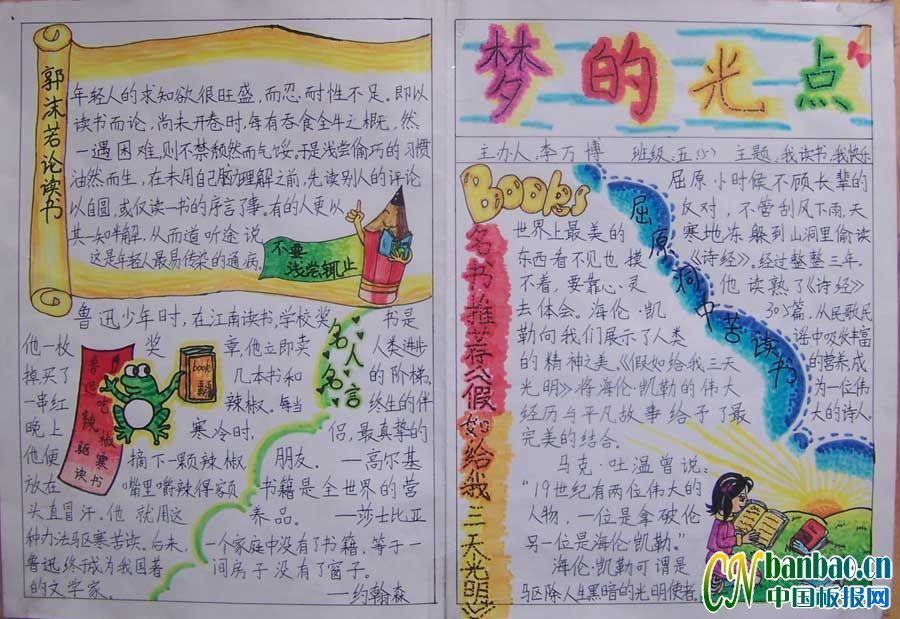 郭沫若论读书
年轻人的求知欲很旺盛,而忍耐性不足。即以
读书而论,尚未开卷时,每有吞食全牛之概,然
一遇困难,则不禁颓然而气馁。于是浅尝偷巧的习惯
油然而生,在未用自己脑力理解之前,先读别人的评论
以自圆,或仅读一书的序言了事。有的人更以
其一知半解,从而道听途说
这是年轻人最易传染的通病。
不要
浅尝辄止
鲁迅少年时,在江南读书,学校奖
他一枚奖章,他立即卖
掉买了几本书和
一串红辣椒。每当
晚上寒冷时,
他便摘下一颗辣椒
放在嘴里嚼辣得家额
头直冒汗。他就用这
种办法驱寒苦读。后来,
鲁迅终于成为我国著
的文学家。
鲁迅吃辣椒驱寒读书
book
名人名言
书是
人类进步
的阶梯,
终生的伴
侣,最真挚的
朋友。—高尔基
书籍是全世界的营
养品。—莎士比亚
一个家庭中没有了书籍,等于一
间房子没有了窗子。
—约翰森
梦的光点
主办人:李万博 班级:五(5) 主题:我读书,我快乐
Books
名书推荐《假如给我三天光明》
世界上最美的
东西看不见也摸
不着,要靠心灵
去体会。海伦·凯
勒向我们展示了人类
的精神之美。《假如给我三天
光明》将海伦·凯勒的伟大
经历与平凡故事给予了最
完美的结合。
马克·吐温曾说:
“19世纪有两位伟大的
人物,一位是拿破伦
另一位是海伦·凯勒。”
海伦·凯勒可谓是
驱除人生黑暗的光明使者
屈原洞中苦读书
屈原小时候不顾长辈的
反对,不管刮风下雨,天
寒地冻躲到山洞里偷读
《诗经》。经过整整三年。
他读熟了《诗经》
305篇,从民歌民
谣中吸收丰富
的营养成
为一位伟
大的诗人。
CN banbao.cn
中国板报网